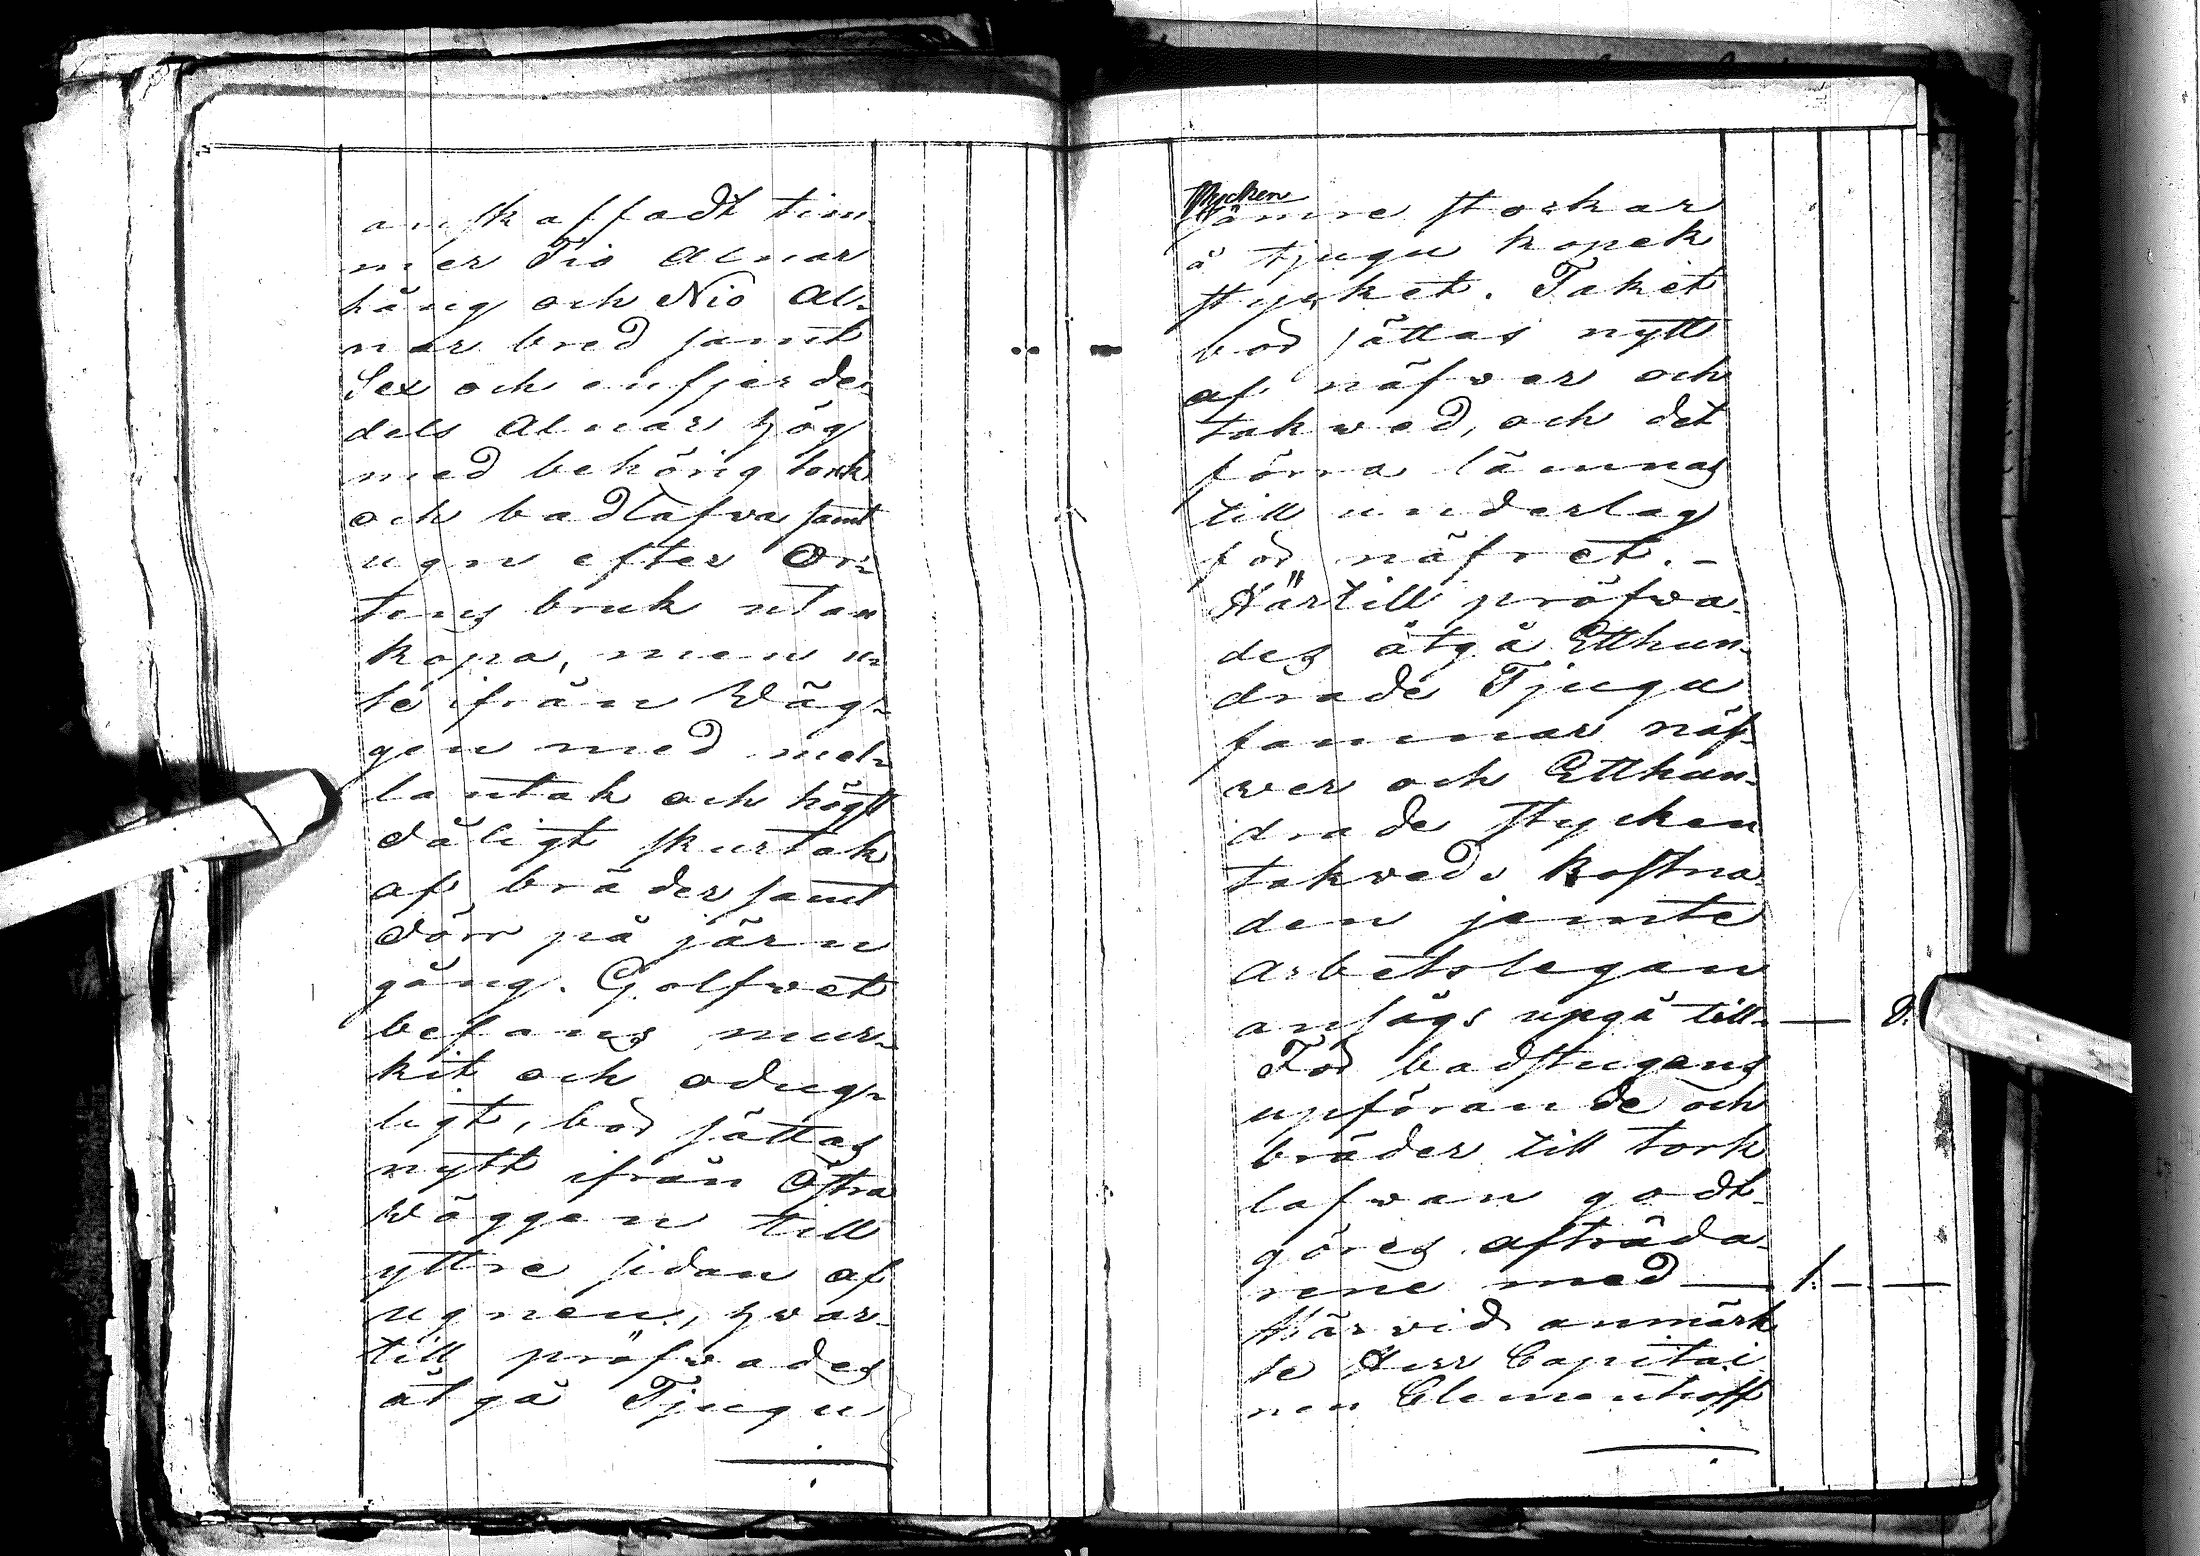 anskaffadt tim-
mer Tio Alnar
lång och Nio Al-
nar bred samt
Sex och enfjerde-
dels Alnar hög
med behörig tork
och badlafva samt
ugn efter Or-
tens bruk utan
kåpa, men u-
te ifrån Wäg-
gen med mel-
lantak och högst
dåligt skurtak
af bräder samt
dörr på järn
gång. Golfwet
befans mur-
kit och odug-
ligt, bör sättas
nytt ifrån Östra
Wäggen till
yttre sidan af
ugnen, hwar-
till pröfwades
åtgå Tjugu
Stycken
sämre stockar
à tjugu kopek
stycket. Taket
bör sättas nytt
af näfwer och
takwed, och det
förra lämnas
till underlag
för näfret. -
Härtill pröfwa-
des åtgå Etthun-
drade Tjugu
famnar näf-
wer och Etthun-
drade stycken
takwed. Kostna-
den jemte
Arbetslegan
ansågs upgå till — 9.
För badstugans
upförande och
bräder till tork
lafwan godt-
göres afträda-
rene med — 1. — —
Härvid anmärk
te Herr Capitai-
nen Clementeoff